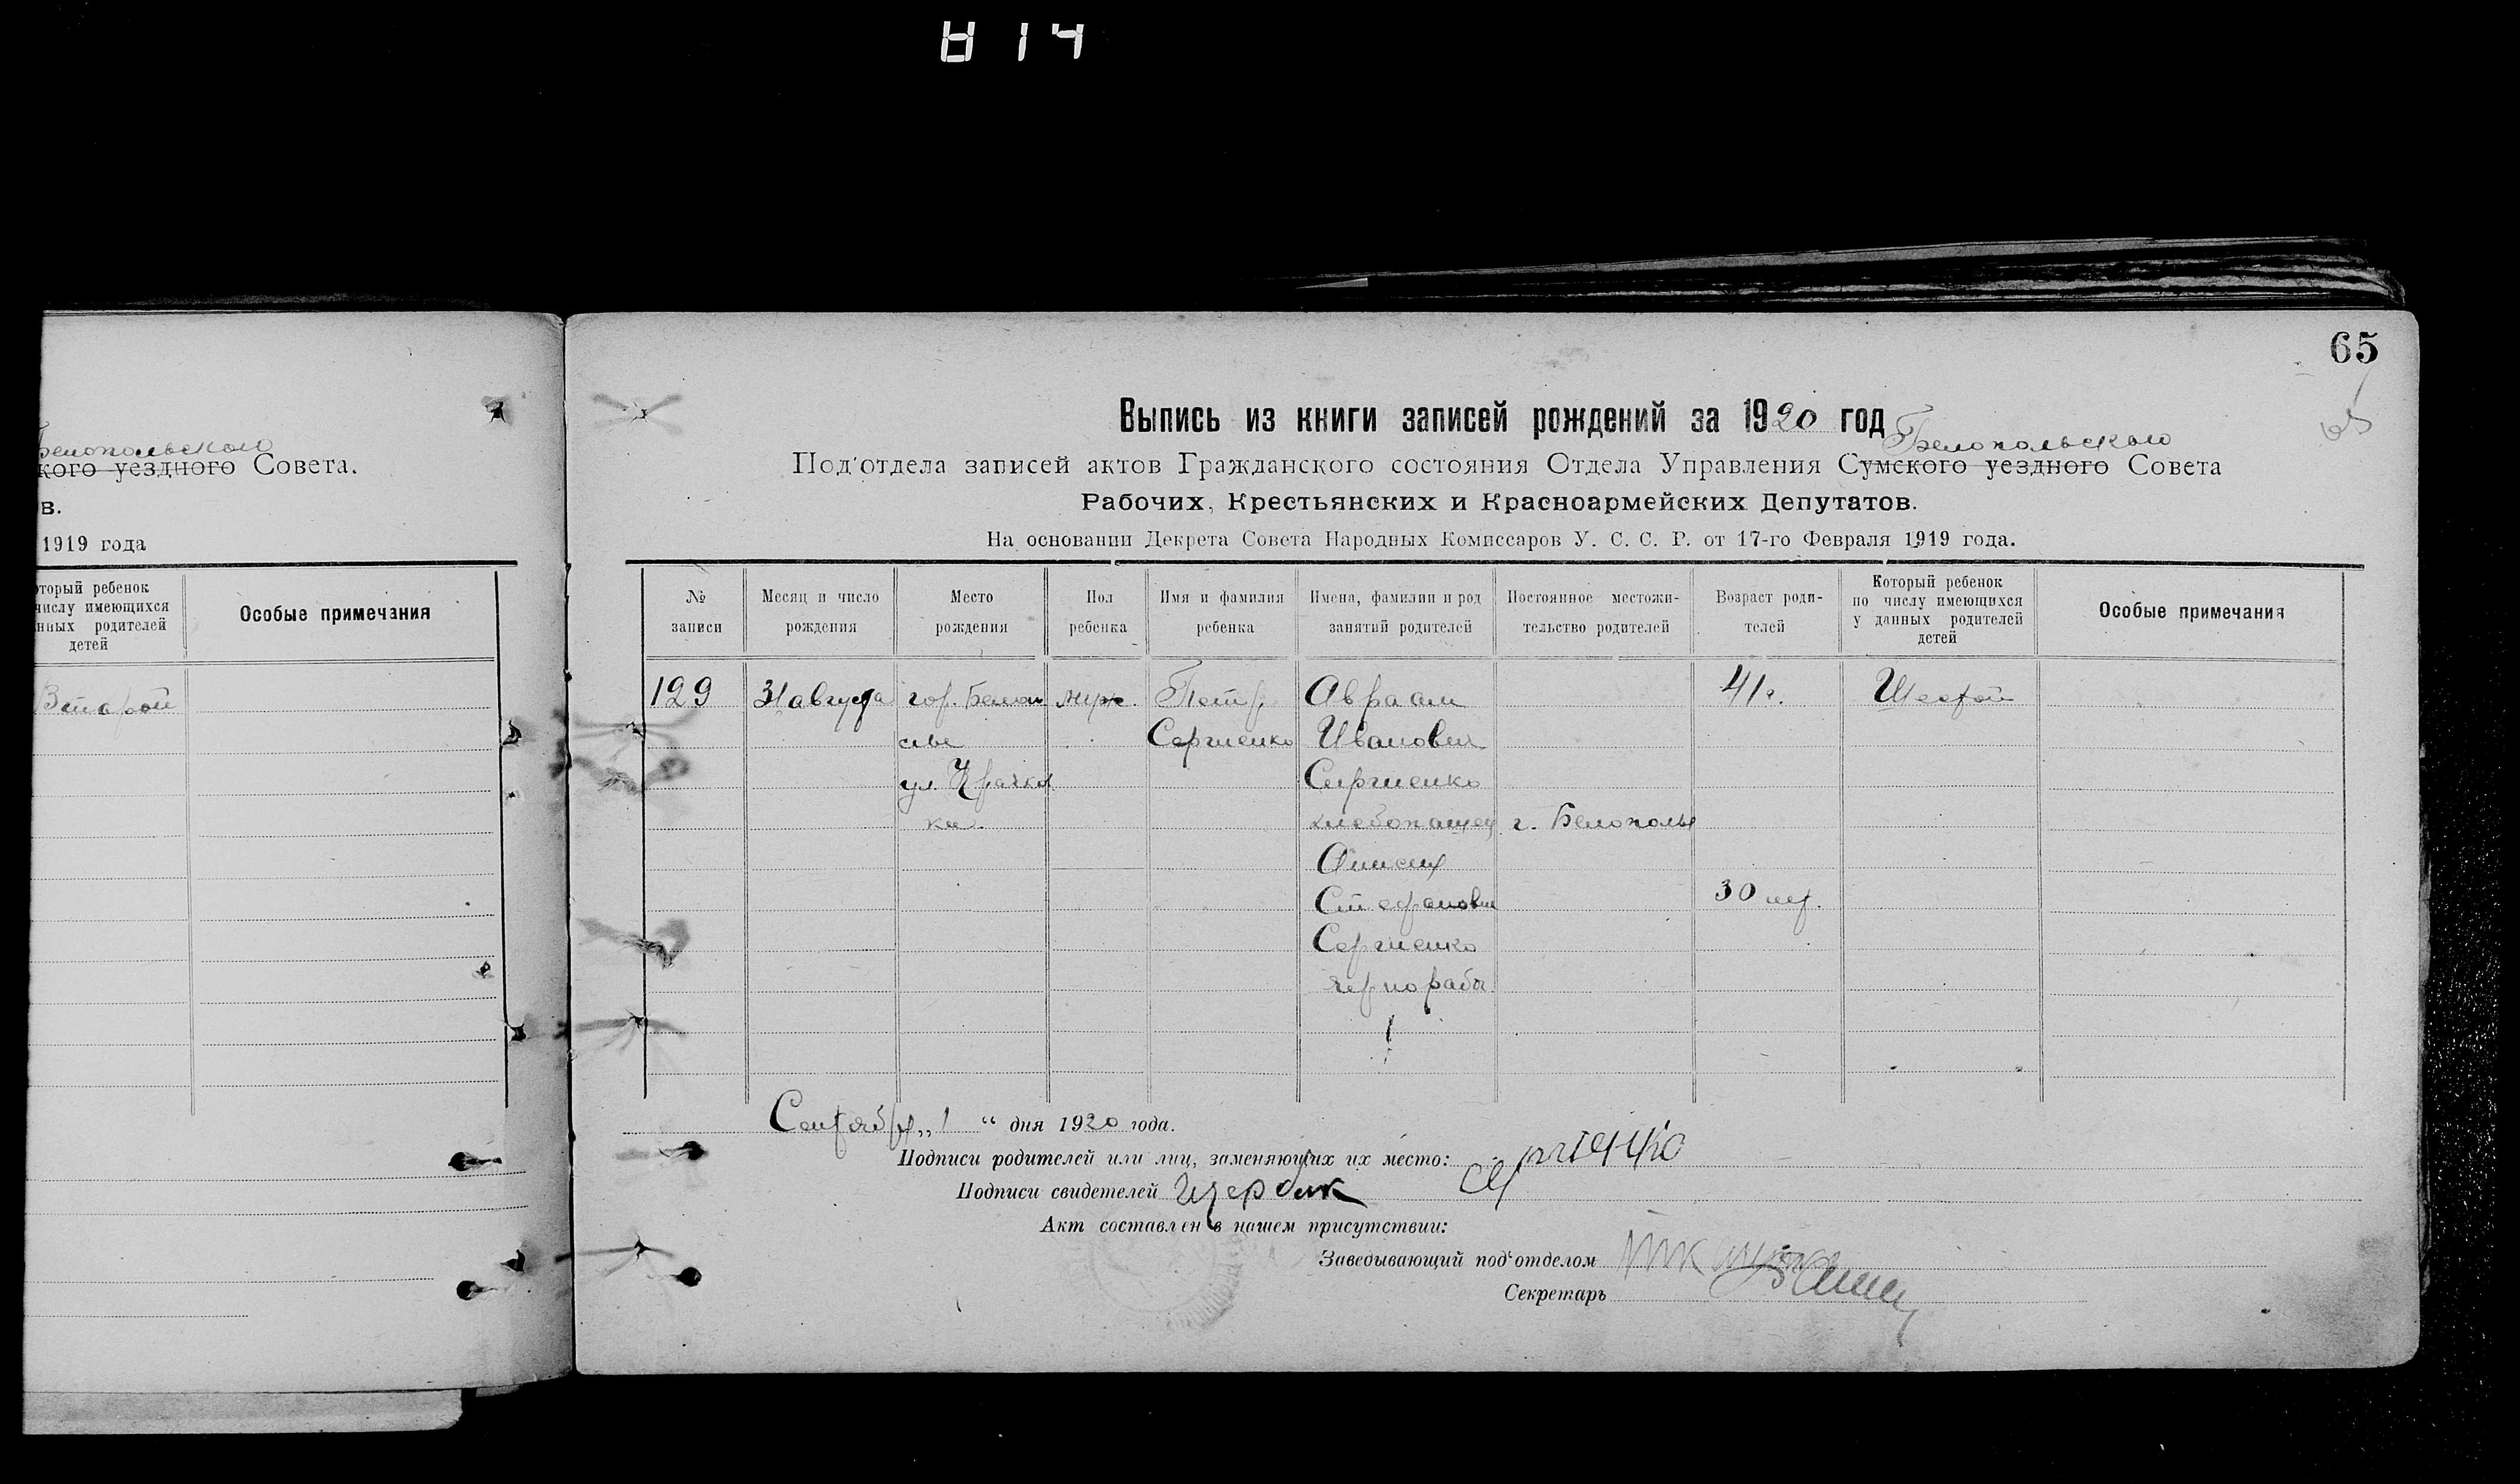 814
Белопольского
кого уездного Совета.
в.
1919 года
оторый ребенок
числу имеющихся
нных родителей
детей
Особые примечания
Второй
65
65
Выпись из книги записей рождений за 1920 год
Белопольского
Под'отдела записей актов Гражданского состояния Отдела Управления Сумского уездного Совета
Рабочих, Крестьянских и Красноармейских Депутатов.
На основании Декрета Совета Народных Комиссаров У. С. С. Р. от 17-го Февраля 1919 года.
№ записи
Месяц и число рождения
Место рождения
Пол ребенка
Имя и фамилия ребенка
Имена, фамилии и род занятий родителей
Постоянное местожи-тельство родителей
Возраст роди-телей
Который ребенок по числу имеющихся у данных родителей детей
Особые примечания
129 31 августа гор. Белополь муж. Петр Авраам 41 г. Шестой
Сергиенко Иванович
ул. Сергиенко
хлебопашец г. Белополье
Стефанови 30 лет.
Сергиенко
чернорабо
Сентября „1 “ дня 1920 года.
Подписи родителей или лиц, заменяющих их место:
Подписи свидетелей Щербак
Акт составлен в нашем присутствии:
Заведывающий под'отделом
Секретарь